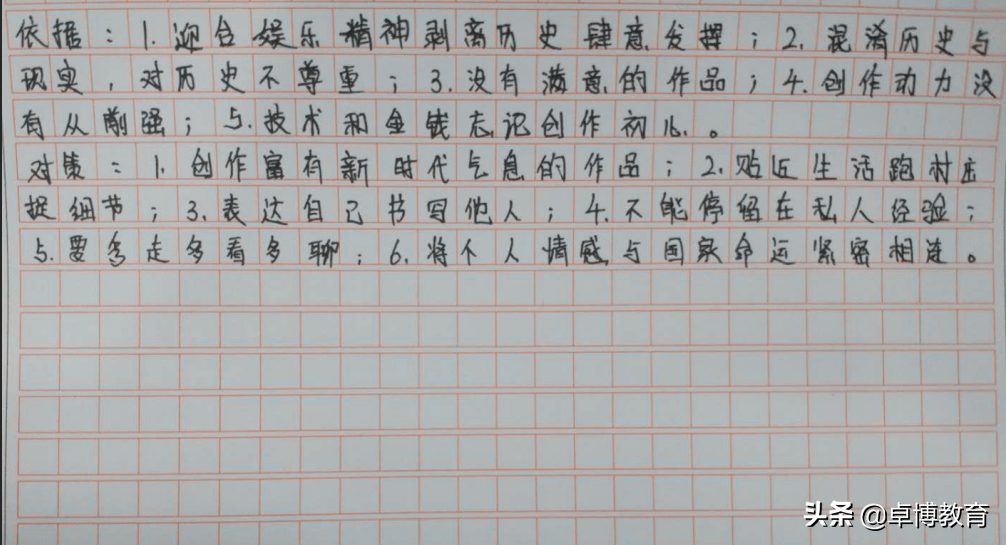 依据：1.迎合娱乐精神剥离历史肆意发挥；2.混淆历史与
现实，对历史不尊重；3.没有满意的作品；4.创作动力没
有从前强；5.技术和金钱忘记创作初心。
对策：1.创作富有新时代气息的作品；2.贴近生活跑村庄
捉细节；3.表达自己书写他人；4.不能停留在私人经验；
5.要多走多看多聊；6.将个人情感与国家命运紧密相连。
头条 @卓博教育